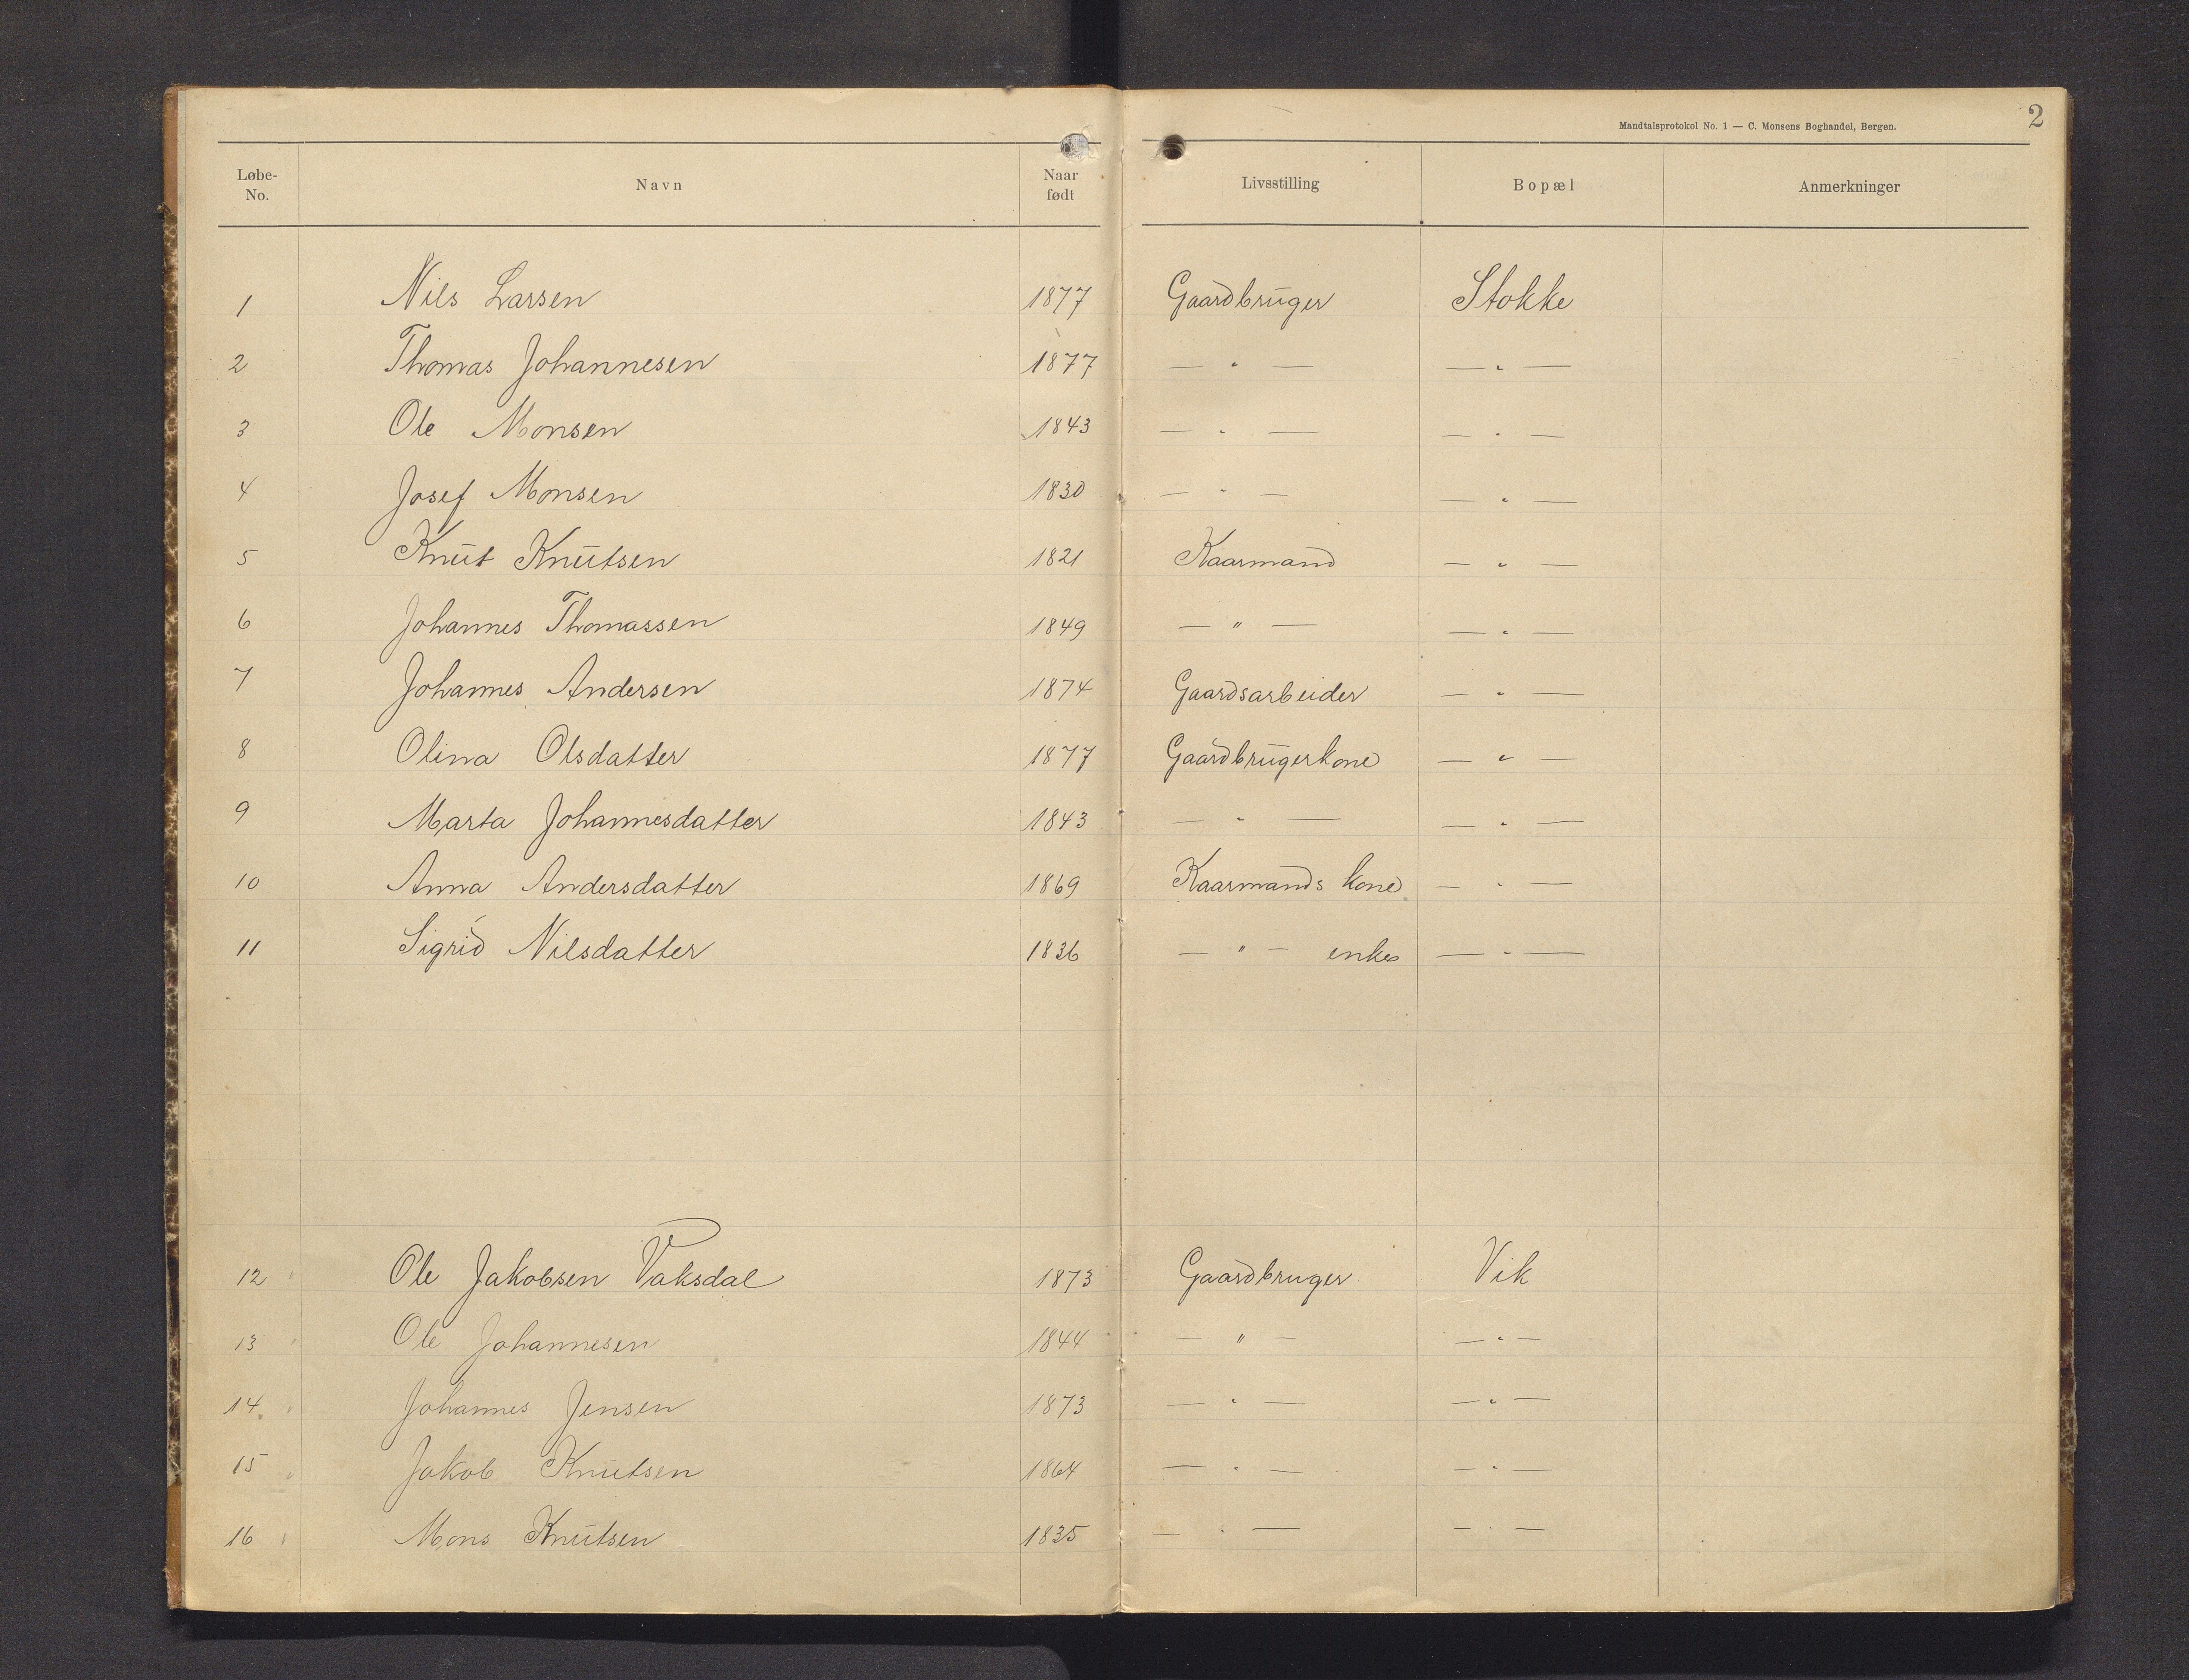 Mandtalsprotokol No. 1 — C. Monsens Boghandel, Bergen. 2
Løbe-No. Navn Naar født Livsstilling Bopæl Anmerkninger
1 Nils Larsen 1877 Gaardbruger Stokke
2 Thomas Johannesen 1877 — " — — " —
3 Ole Monsen 1843 — " — — " —
4 Josef Monsen 1830 — " — — " —
5 Knut Knutsen 1821 Kaarmand — " —
6 Johannes Thomassen 1849 — " — — " —
7 Johannes Andersen 1874 Gaardsarbeider — " —
8 Olina Olsdatter 1877 Gaardbrugerkone — " —
9 Marta Johannesdatter 1843 — " — — " —
10 Anna Andersdatter 1869 Kaarmands kone — " —
11 Sigrid Nilsdatter 1836 — " — enke — " —
12 Ole Jakobsen Vaksdal 1873 Gaardbruger Vik
13 Ole Johannesen 1844 — " — — " —
14. Johannes Jensen 1873 — " — — " —
15 Jakob Knutsen 1864 — " — — " —
16 Mons Knutsen 1835 — " — — " —